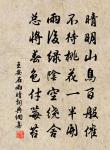 晴明山鳥百般催
不待桃花一半開
雨後綠陰空繞舍
總將春色付莓苔
王安石雨晴